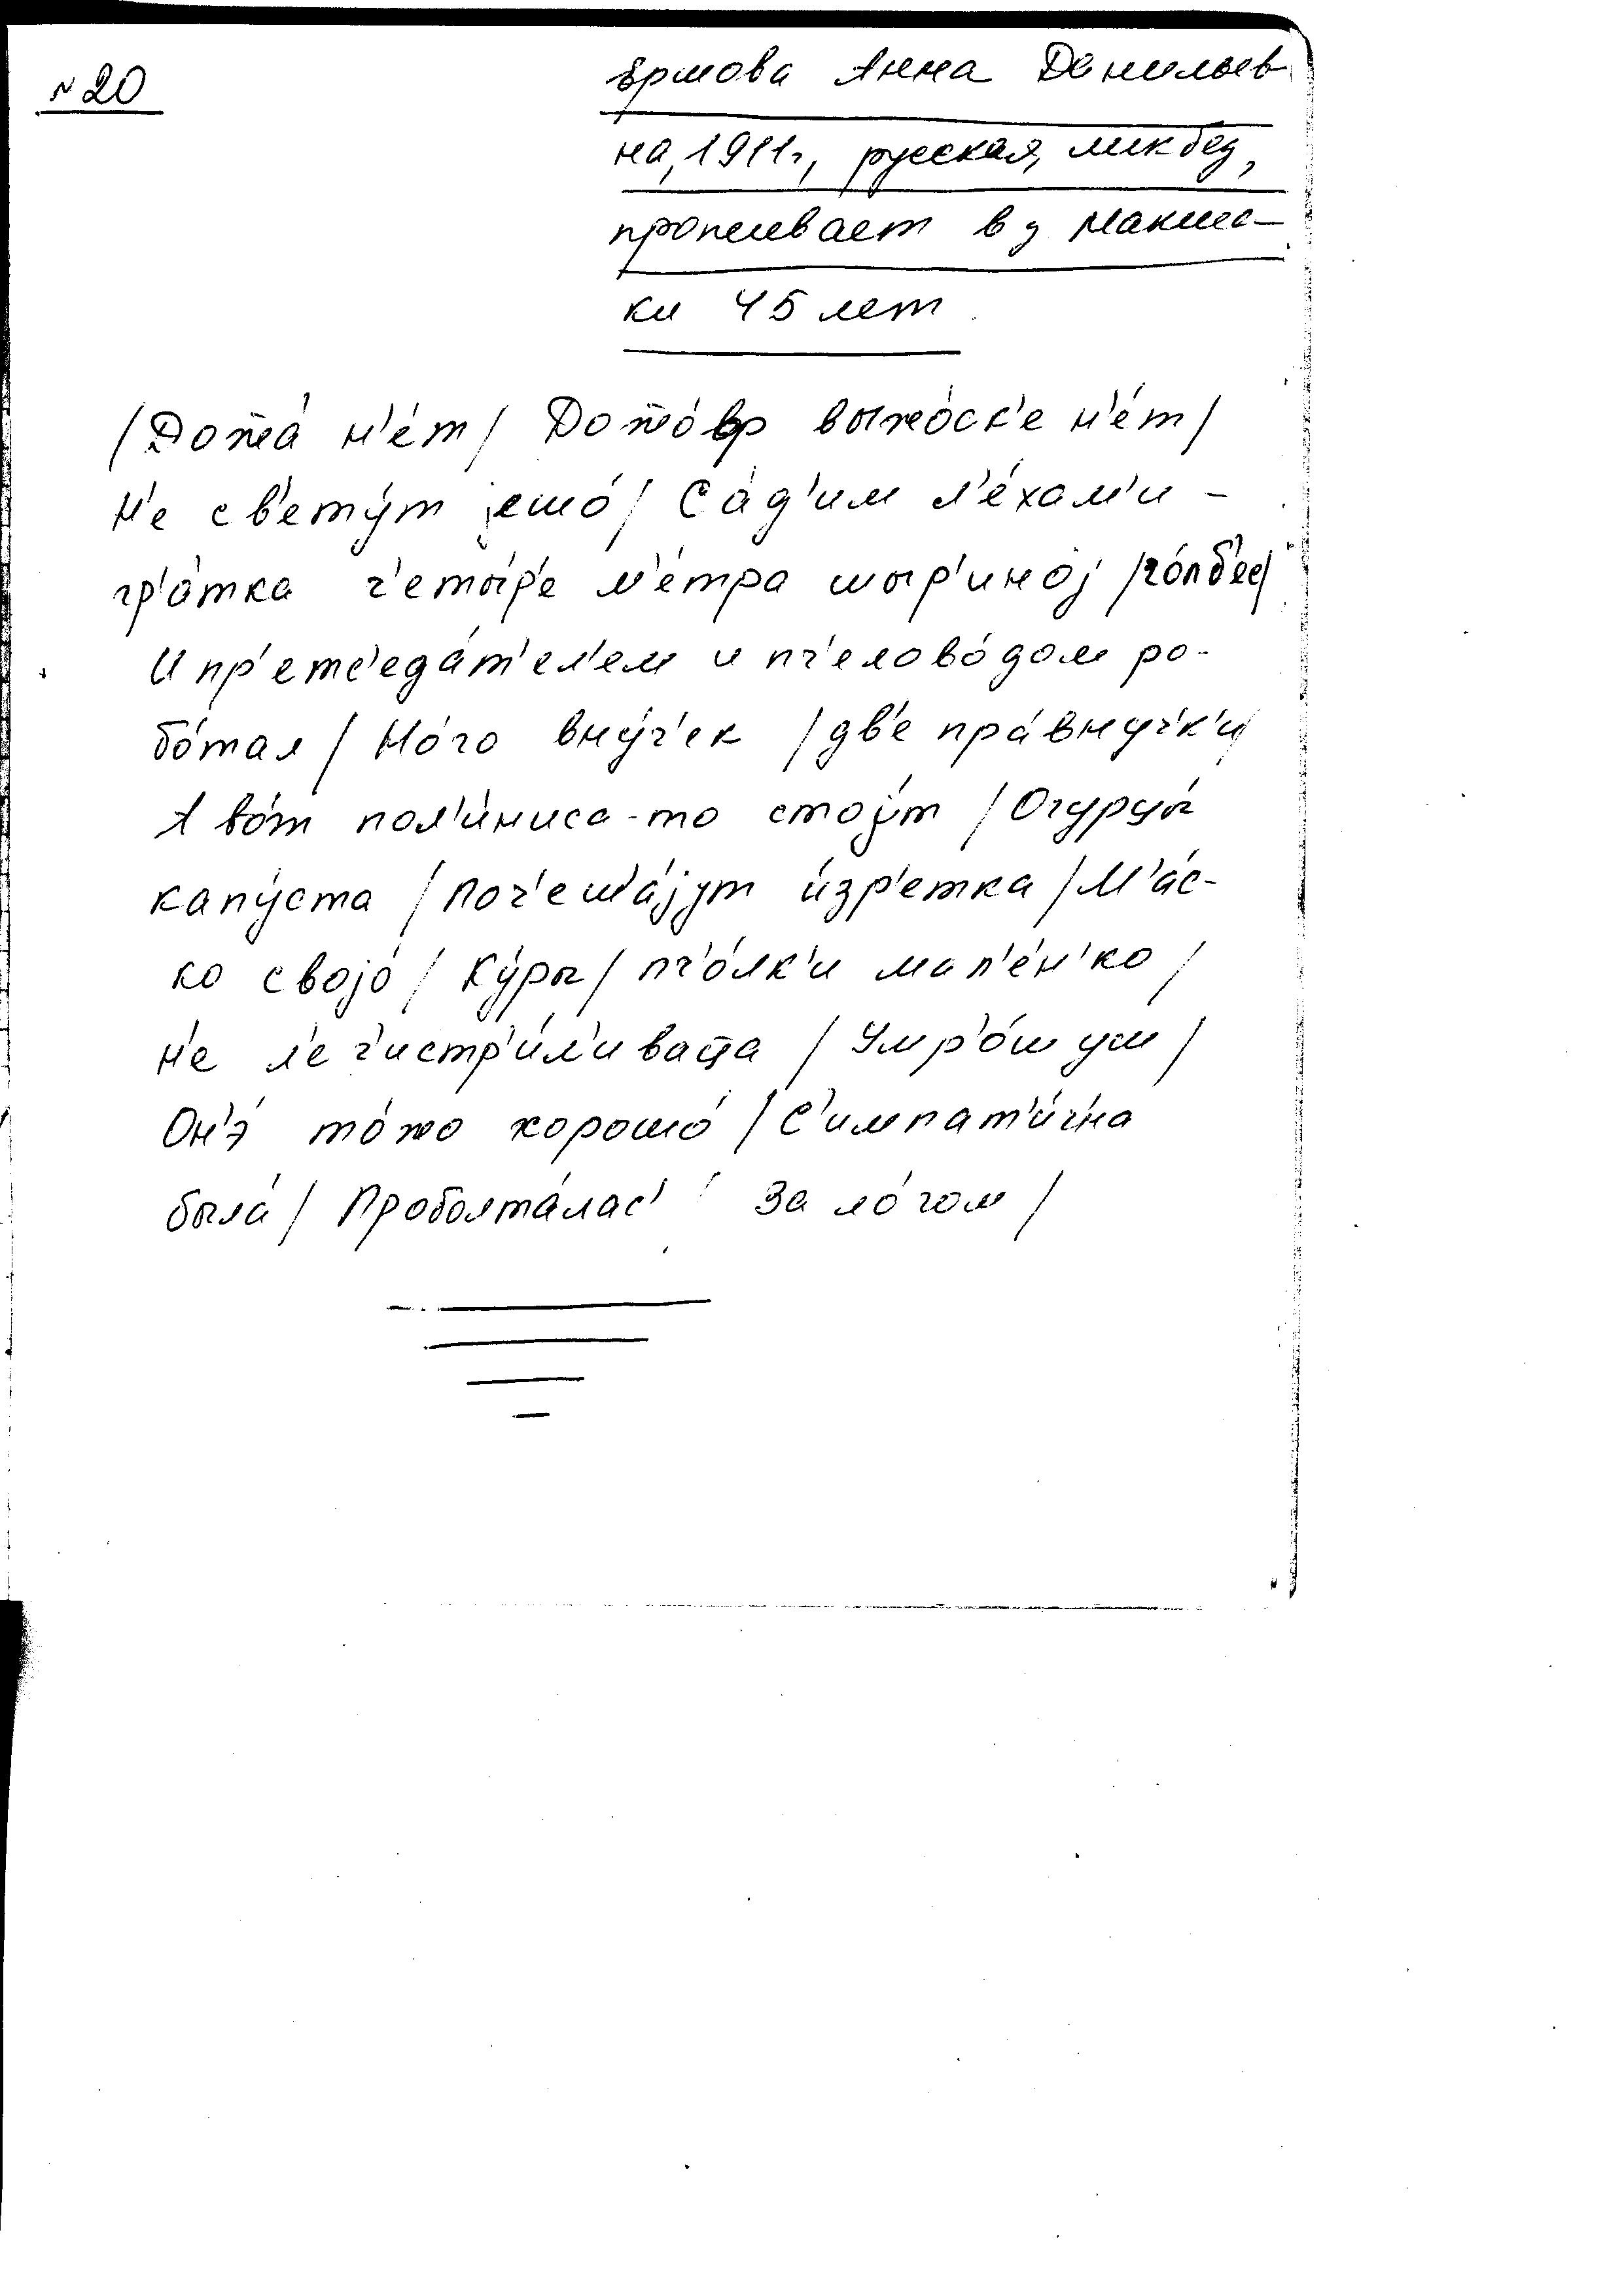 № 20
Ермова Анна Данильев
на, 1911г, русская, ликбез,
проживает в д Макше-
ки 45 лет
/ н'е́т / выжо́ск'е н'е́т /
Н'е св'ету́т jешо́ / Са́д'им л'е́хам'и -
гр'а́тка ч'еты́р'е м'е́тра шыр'иноj /
И пр'етс'еда́т'ел'ем и пч'елово́дом ро-
бо́тал / Но́го вну́ч'ек / дв'е пра́внуч'к'и /
А во́т пол'и́ниса-то стоjи́т / Огурцы́
капу́ста / Поч'еша́jут и́зр'етка / М'а́с-
ко своjо́ / Ку́ры / пч'о́лк'и мал'е́н'ко /
н'е л'еч'истр'и́л'иваца / Умр'о́ш уш /
Он'э́ то́жо хорошо́ / С'импат'и́ч'на
была́ / Проболта́лас' За ло́гом /